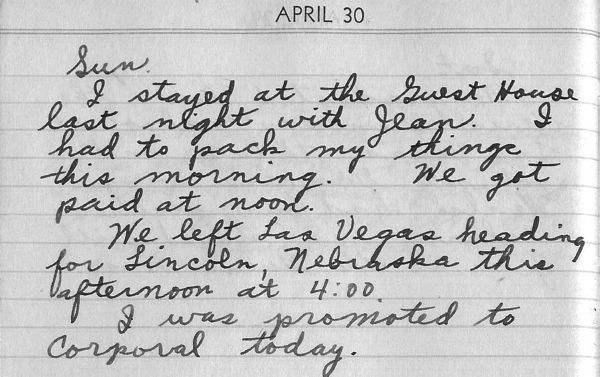 APRIL 30
Sun.
I stayed at the Guest House
last night with Jean. I
had to pack my things
this morning. We got
paid at noon.
We left Las Vegas heading
for Lincoln, Nebraska this
afternoon at 4:00
I was promoted to
Corporal today.